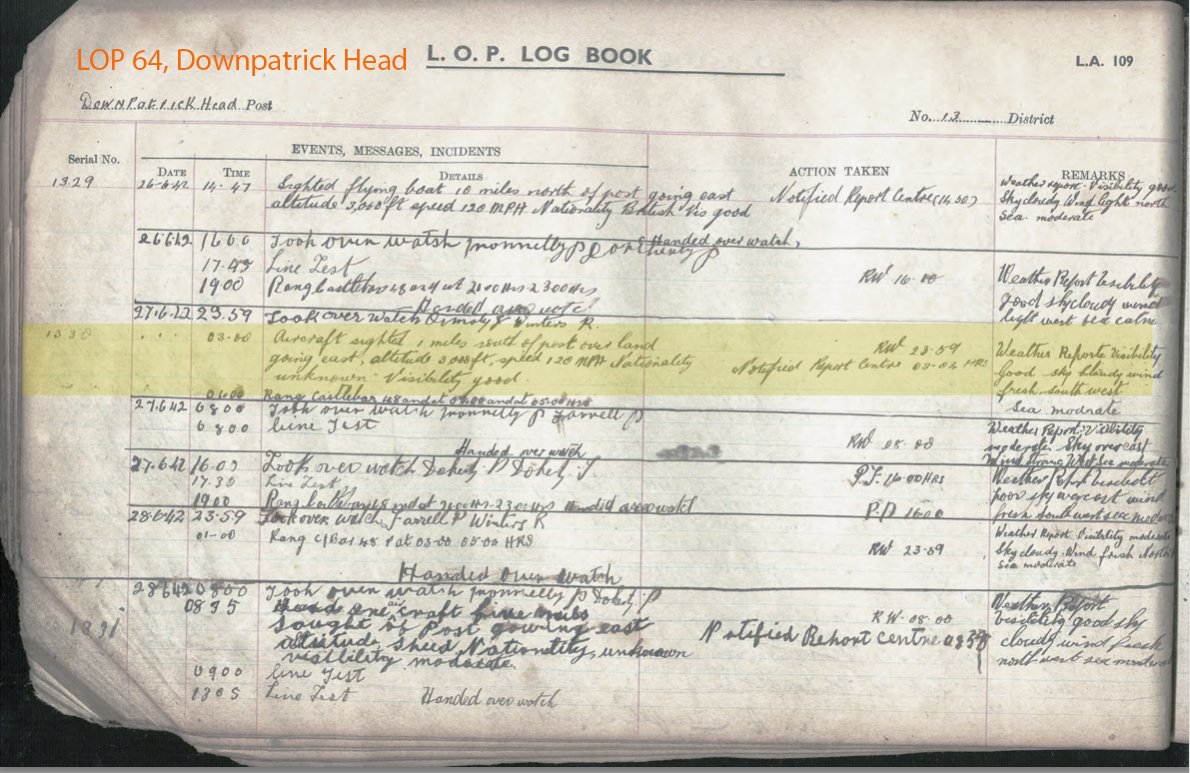 LOP 64, Downpatrick Head
L. O. P. LOG BOOK
L.A. 109
DownPatrick Head Post
No. 13 District
EVENTS, MESSAGES, INCIDENTS
Serial No.
DATE TIME DETAILS
ACTION TAKEN
REMARKS
1329 26-6-42 14-47 Sighted flying boat 10 miles north of post going east
altitude 3,000ft speed 120 MPH Nationality British Vis good
Notified Report Centre (14.50)
Weather report Visibility good
Sky cloudy Wind light north
Sea moderate
26.6.42 16.00 Took over watch
Handed over watch
17.45 Line Test
19.00 Rang Castlebar 48 and at 2100 Hrs 2300 Hrs
RW 16-00
Weather Report Visibility
good sky cloudy wind
light west sea calm
Handed over watch
27.6.42 23.59 Took over Watch Winters R.
1330 03-00 Aircraft sighted 1 miles south of post over land
going east, altitude 3000ft, speed 120 MPH Nationality
unknown Visibility good.
RW 23-59
Notified Report Centre 03-04 HRS
Weather Reporte Visibility
Good sky cloudy wind
fresh south west
Sea modrate
01.00 Rang Castlebar 48 and at 03.00 and at 05.00 HRS
27.6.42 0800 Took over watch P Farrell P
0800 Line Test
Handed over watch
RW 08.00
Weather Report Visibility
moderate Sky overcast
Wind Strong West Sea moderate
27.6.42 16.00 Took over watch Doherty P Dohety J.
17.30 Line Test
1900 Rang Castlebar 48 and at 2100 Hrs 2300 Hrs Handed over watch
P.J. 16.00HRS
P.D 1600
Weather Report
poor sky overcast wind
fresh south west sea
28.6.42 23.59 Took over watch Farrell P Winters R
01-00 Rang C/Bar 48 at 03-00 05-00 HRS
RW 23-59
Weather Report Visibility moderate
Sky cloudy Wind fresh North
Sea moderate
Handed over watch
28.6.42 0800 Took over watch P Dohety P
1331 0835 Heard air craft five miles
Sought of Post gowing east
altitude Nationality unknown
visibility moderate.
RW. 08.00
Notified Rehort centre
Weather Report
visibility good sky
cloudy wind fresh
north west sea moderate
0900 Line Test
1305 Line Test Handed over watch